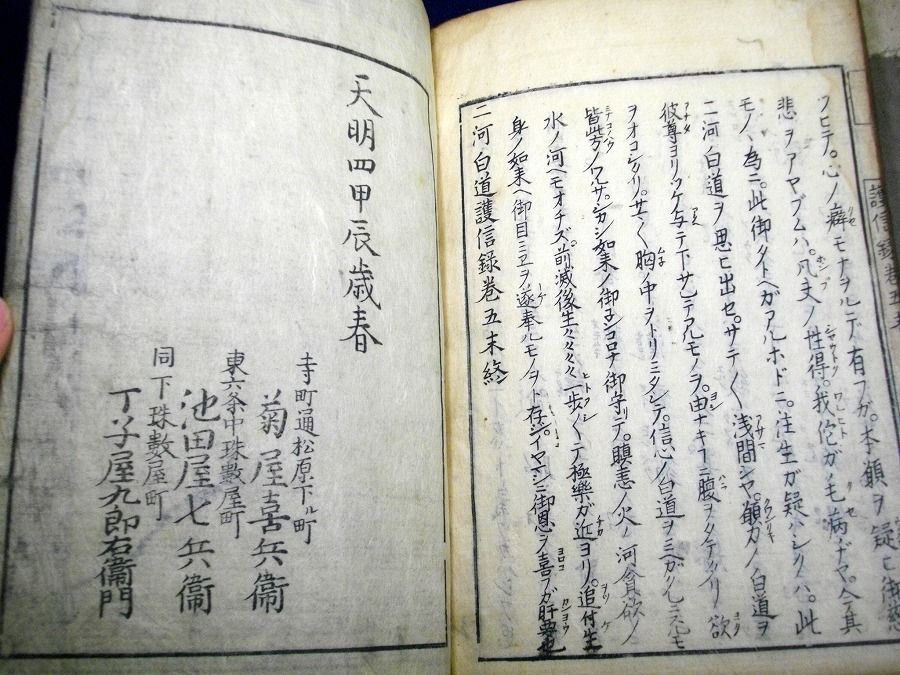 フヒテ。心ノ癖モナヲルデ有フガ。本願ヲ疑ヒ御慈
悲ヲアヤブムハ。凡夫ノ性得。我他ガ毛病ヂヤ。今其
モノヽ為ニ。此御タトヘガアルホドニ。注生ガ疑ハシクハ。此
二河ノ白道ヲ思ヒ出セ。サテ〱浅間シヤ。願力ノ白道ヲ
彼尊ヨリツケ与テ下サレテアルモノヲ。由ナキ㕝ニ腹ヲタテ〱ノ欲
ヲオコシタリ。サマ〱胸ノ中ヲトリミダシテ。信心ノ白道ヲ
皆此方ノワルサ。シカシ如来ノ御コヽロナ御守リテ。瞋恚ノ火ノ河貪欲ノ
水ノ河ヘモオチズ。前滅後生々々々一歩〱テ極楽ガ近ヨリ。追付生
身ノ如来ヘ御目ミヱヲ遂奉ルモノヲト存ジ。イヤマシニ御恩ヲ喜フガ肝要也
二河白道護信録巻五末終
護信録巻五末
天明四甲辰歳春
寺町通松原下ル町
菊屋喜兵衞
東六条中珠數屋町
池田屋七兵衞
同下珠數屋町
丁子屋九郎右衞門